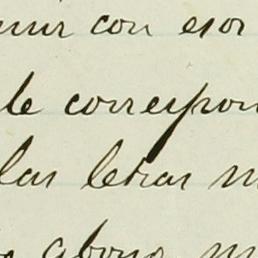 con esos
le correspon
las letras m
abono m